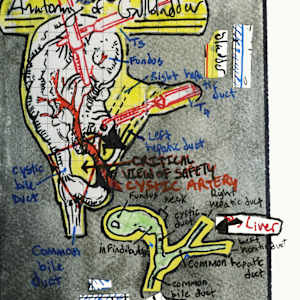 Anatomy of Gallbladder
T3
Fundus
Right hepatic
duct
T4
Left
hepatic duct
CRITICAL
VIEW OF SAFETY
CYSTIC ARTERY
Cystic
bile
Duct
Common
bile
Duct
Fundus neck
Right
hepatic duct
cystic
duct
Liver
Left
hepatic duct
infindibulum
common hepatic
duct
common
bile duct